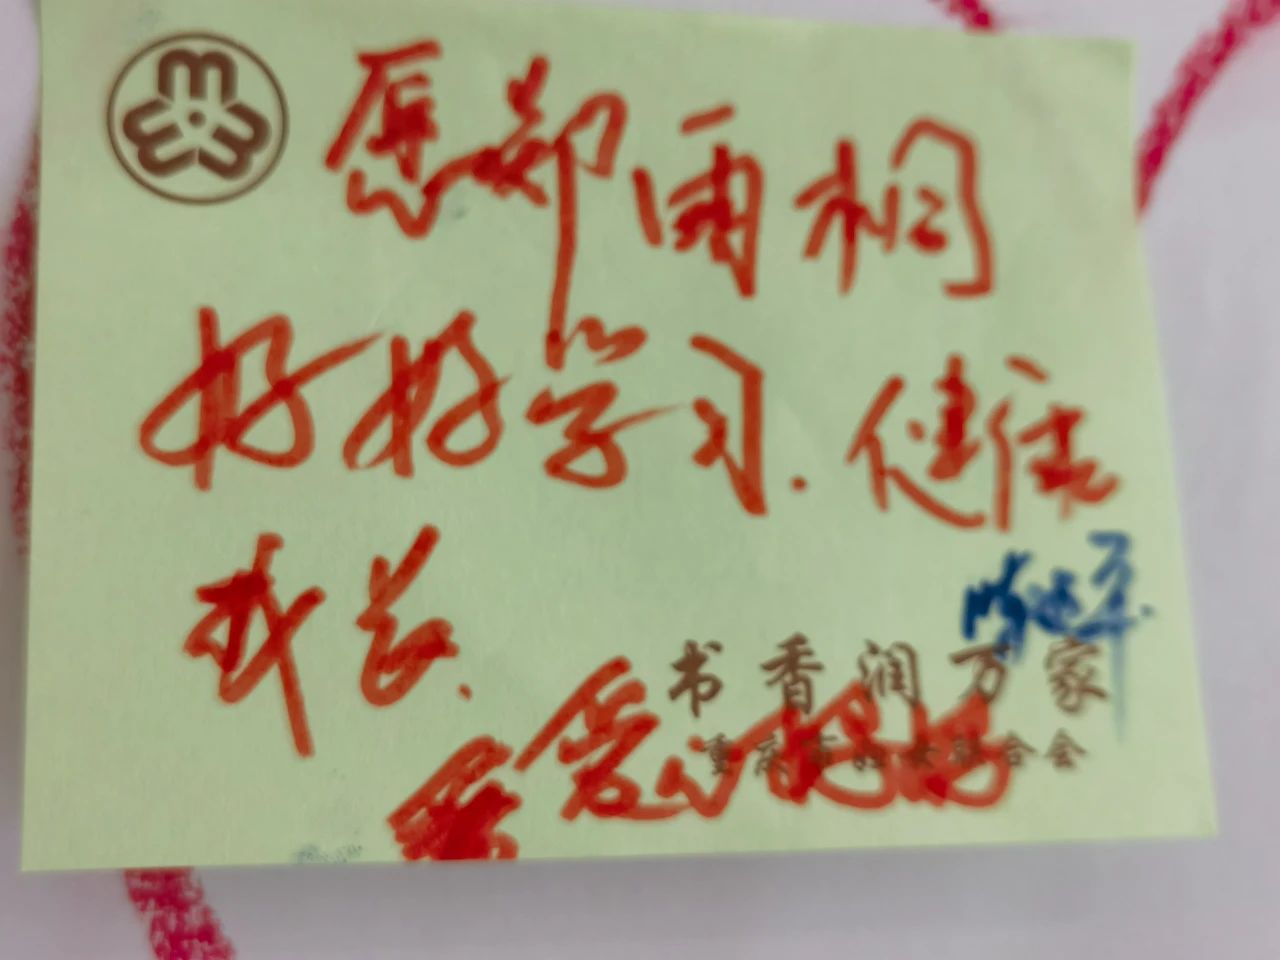 愿郑雨桐
好好学习.健康
成长.
爱心妈妈
书香润万家
重庆市妇女联合会